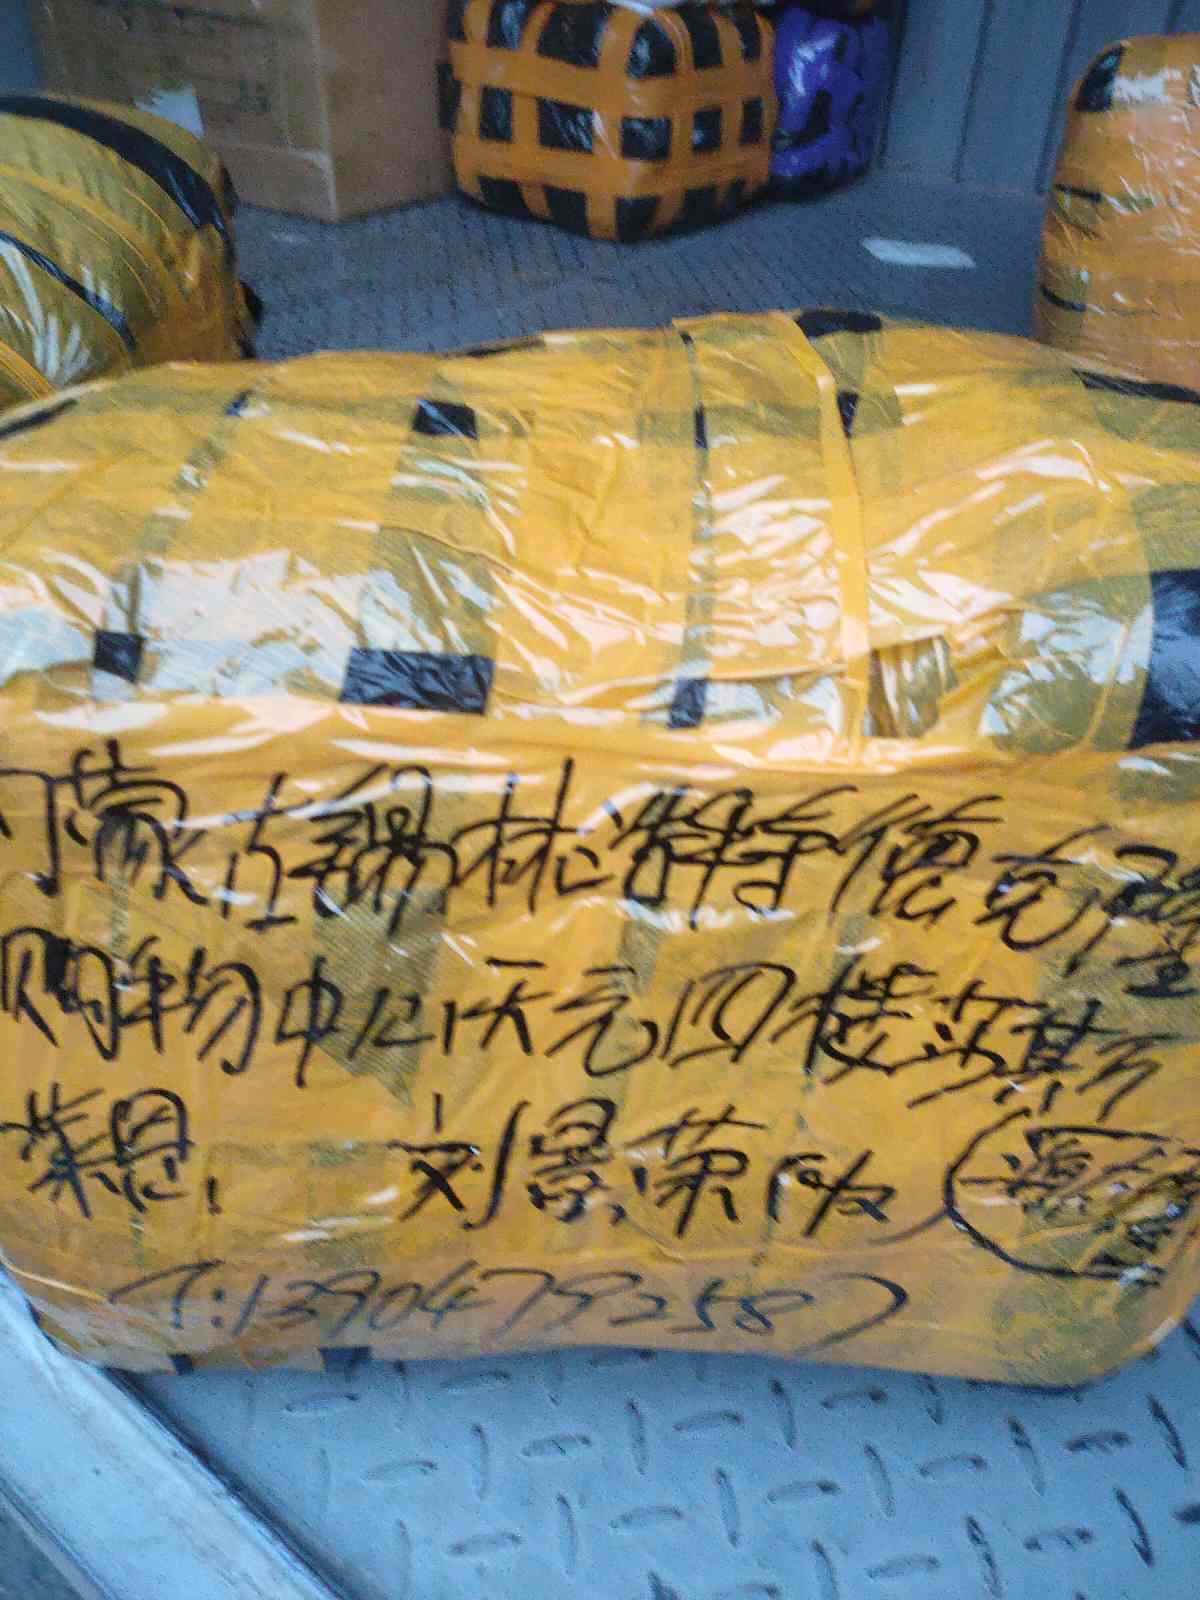 内蒙古锡林浩特德克隆
购物中心庆元四楼莎斯
莱恩. 刘景荣收
T:13904792587